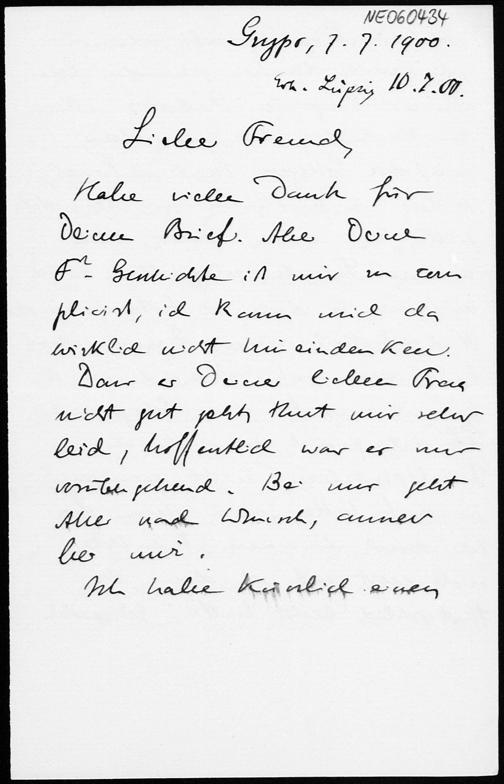 NE060434
Gryps, 7. 7. 1900.
Erh. Leipzig 10.7.00.
Lieber Freund,
Habe vielen Dank für
Deinen Brief. Aber Deine
Geschichte ist mir zu com
plicirt, ich kann mich da
wirklich nicht hineindenken.
Dass es Deiner lieben Frau
nicht gut geht, thut mir sehr
leid, hoffentlich war es nur
vorübergehend. Bei mir geht
Alles nach Wunsch, ausser
bei mir.
Ich habe kürzlich einen